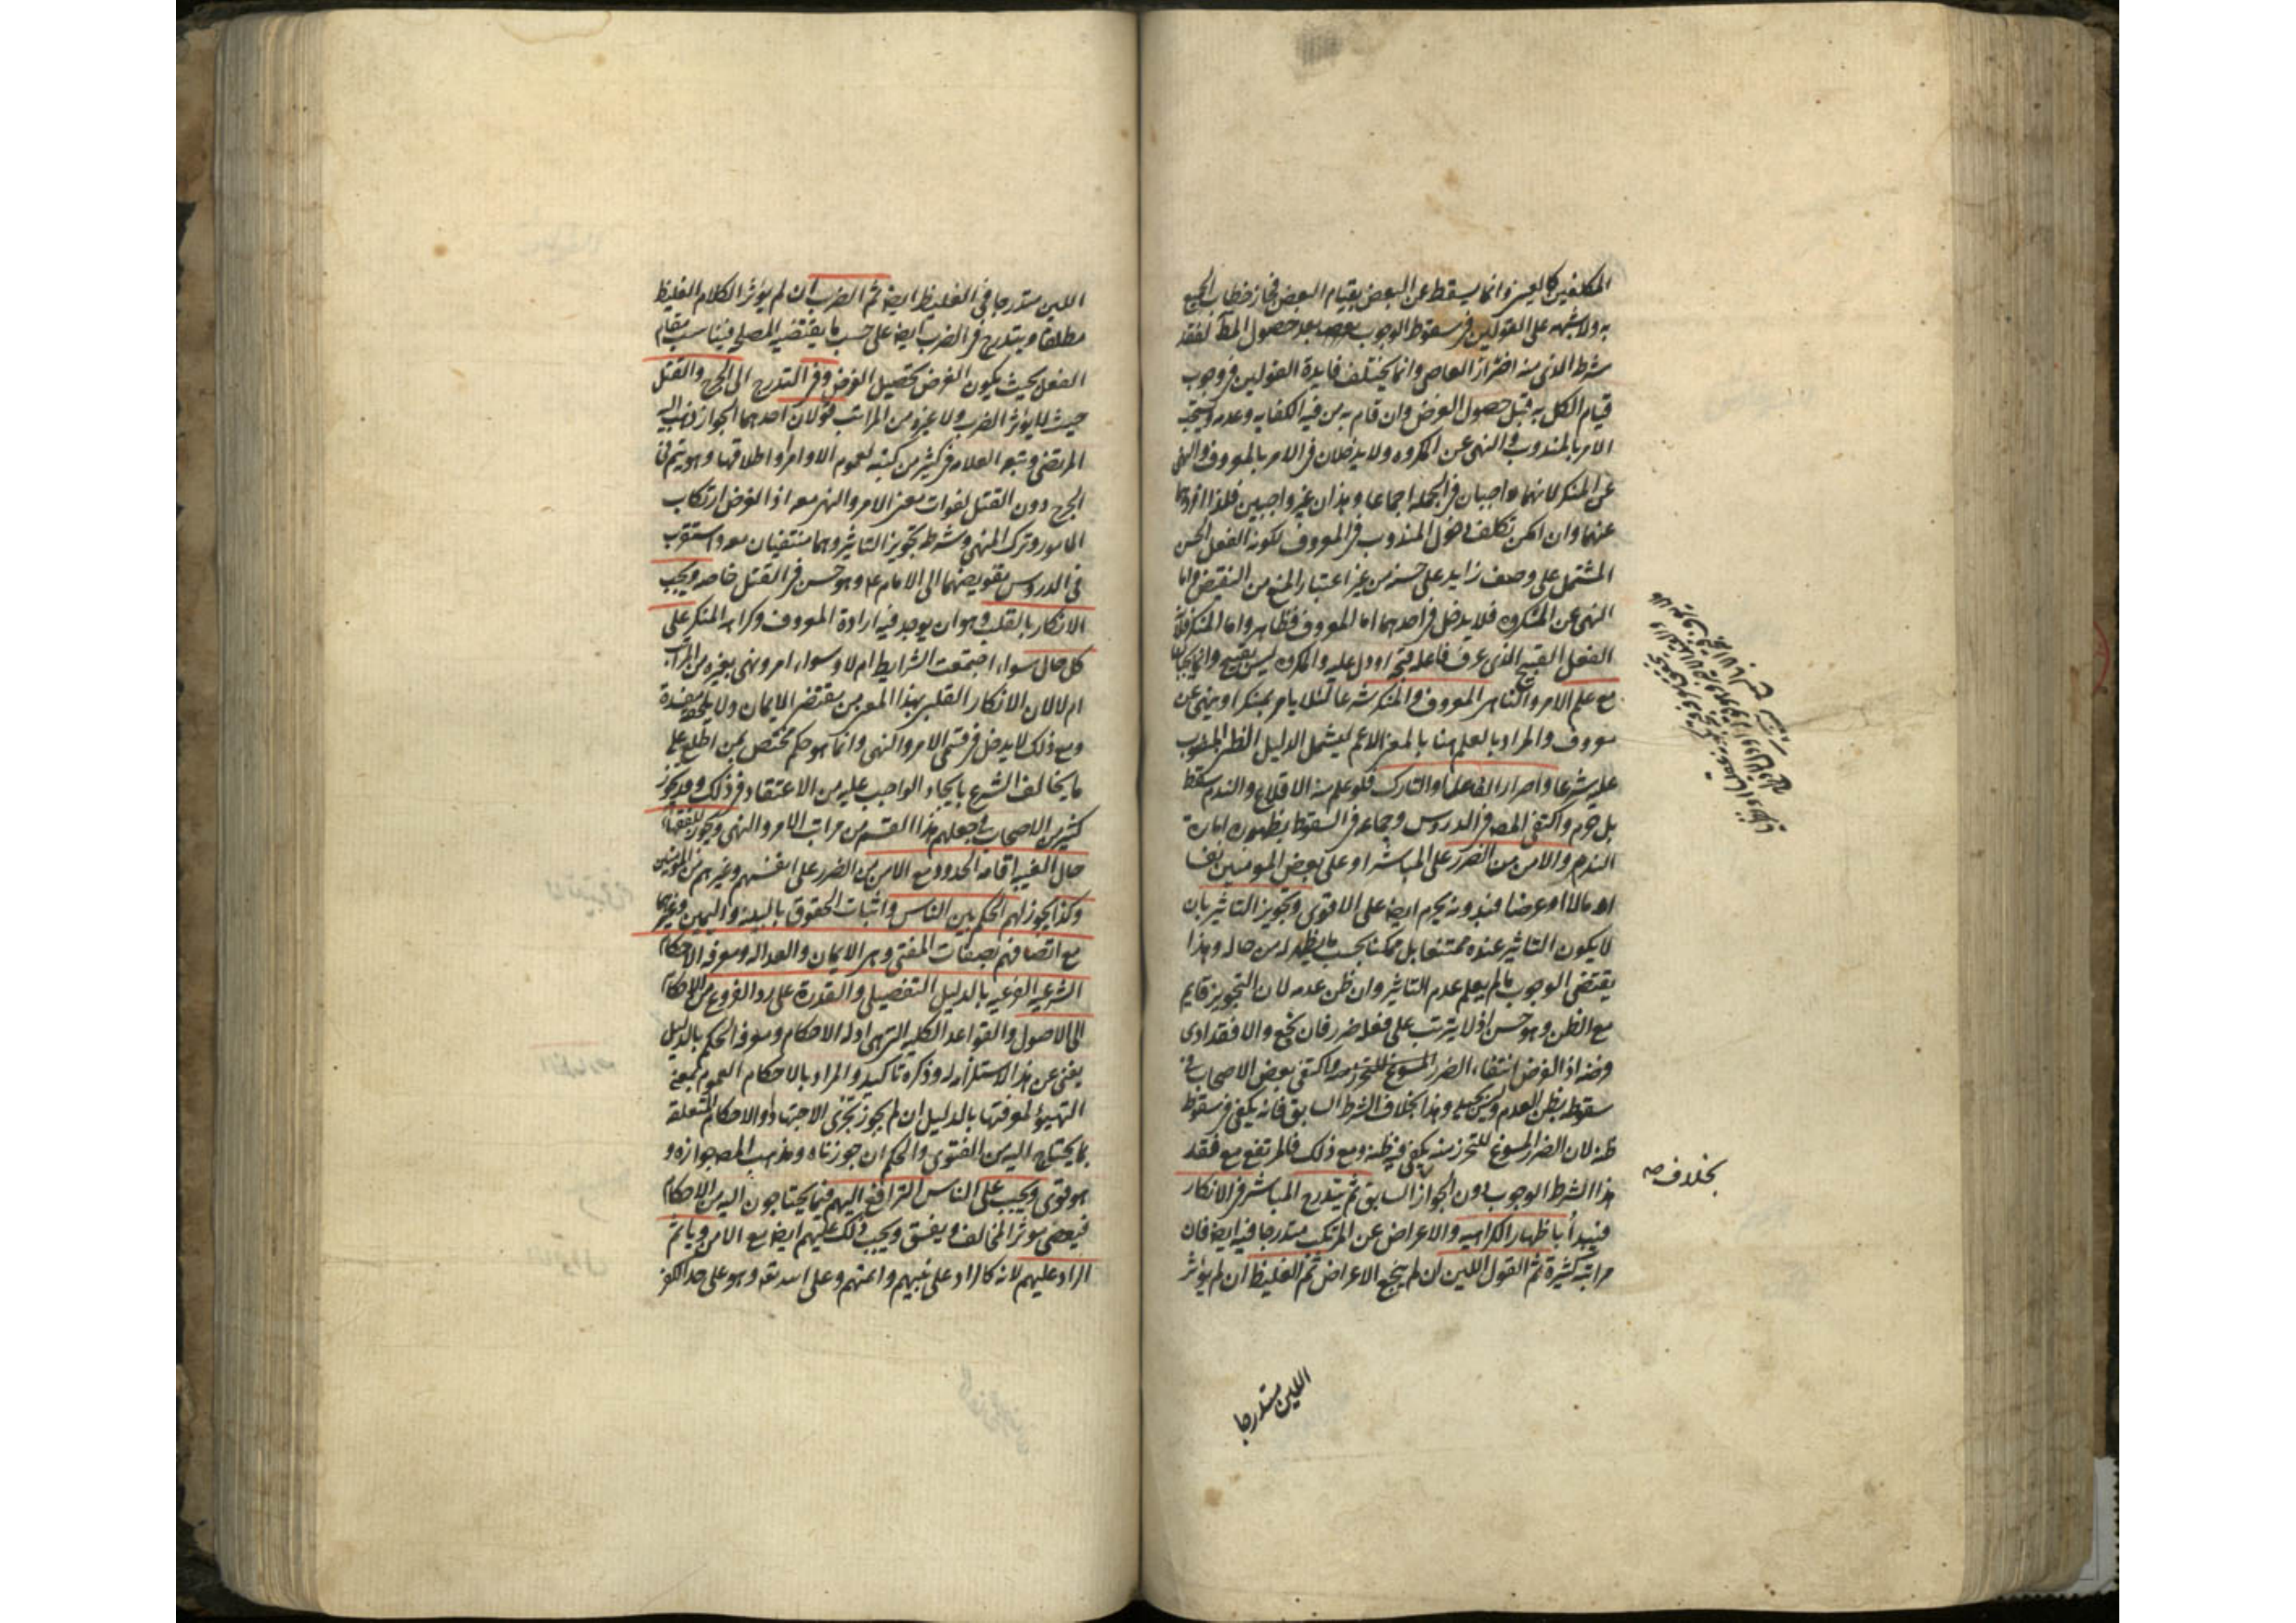 المكلفين كالعيني وانما يسقط عن البعض بقيام البعض فجاز خطاب الجميع
به ولا شبهه على القولين في سقوط الوجوب بعد حصول المط لفقد
شرطه الذي منه اصرار العاصي وانما يختلف فايدة القولين في وجوب
قيام الكل به قبل حصول الغرض وان قام به من فيه الكفايه وعدمه ويستحب
الامر بالمندوب والنهى عن المكروه ولا يدخلان في الامر بالمعروف والنهى
عن المنكر لانهما واجبان في الجمله اجماعا وهذان غير واجبين فلذا افردهما
عنهما وان امكن تكلف دخول المندوب في المعروف لكونه الفعل الحسن
المشتمل على وصف زايد على حسنه من غير اعتبار المنع من النقيض واما
النهى عن المكروه فلا يدخل في احدهما اما المعروف فظاهر واما المنكر فلانه
الفعل القبيح الذي عرف فاعله قبحه او دل عليه والمكروه ليس بقبيح وانما يجبان
مع علم الامر والناهي المعروف والمنكر شرعا لئلا يامر بمنكر او ينهى عن
معروف والمراد بالعلم هنا بالمعنى الاعم ليشمل الدليل الظني المنصوب
عليه شرعا واصرار الفاعل او التارك فلو علم منه الاقلاع والندم سقط
بل حرم واكتفى المص في الدروس وجماعه في السقوط بظهور امارة
الندم والامن من الضرر على المباشر او على بعض المومنين نفسا
او مالا او عرضا فبدونه يحرم ايضا على الاقوى وتجويز التاثير بان
لا يكون التاثير عنده ممتنعا بل ممكنا بحسب ما يظهر له من حاله وهذا
يقتضي الوجوب ما لم يعلم عدم التاثير وان ظن عدمه لان التجويز قايم
مع الظن وهو حسن اذ لا يترتب على فعله ضرر فان نجع والا فقد ادى
فرضه اذ الفرض انتفاء الضرر واكتفى بعض الاصحاب في
سقوطه بظن العدم وليس بجيد وهذا بخلاف الشرط السابق فانه يكفي في سقوطه
ظنه لان الضرر المسوغ للتحرز منه يكفي فيه ظنه ومع ذلك فالمرتفع مع فقد
هذا الشرط الوجوب دون الجواز السابق ثم يتدرج المباشر في الانكار
فيبدأ باظهار الكراهيه والاعراض عن المرتكب متدرجا فيه ايضا فان
مراتبه كثيرة ثم القول اللين ان لم ينجع الاعراض ثم الغليظ ان لم يؤثر
بخلاف صه
اللين متدرجا
اللين متدرجا في الغليظ ايضا ثم الضرب ان لم يؤثر الكلام الغليظ
مطلقا ويتدرج في الضرب ايضا على حسب ما يقتضيه المصلحه ويناسب مقام
الفعل بحيث يكون الغرض تحصيل الغرض وفي التدرج الى الجرح والقتل
حيث لا يؤثر الضرب ولا غيره من المراتب قولان احدهما الجواز ذهب اليه
المرتضى وتبعه العلامه في كثير من كتبه لعموم الاوامر واطلاقها وهو يتم في
الجرح دون القتل لفوات معنى الامر والنهي معه اذ الغرض ارتكاب
المامور وترك المنهى وشرطه تجويز التاثير وهما منتفيان معه واستقرب
في الدروس تفويضهما الى الامام ع وهو حسن في القتل خاصه ويجب
الانكار بالقلب وهو ان يوجد فيه ارادة المعروف وكراهه المنكر على
كل حال سواء اجتمعت الشرايط ام لا وسواء امر ونهى بغيره من المراتب
ام لا لان الانكار القلبي بهذا المعنى من مقتضى الايمان ولا يلحقه مفسدة
ومع ذلك لا يدخل في قسمي الامر والنهى وانما هو حكم مختص بمن اطلع على
ما يخالف الشرع بايجاد الواجب عليه من الاعتقاد في ذلك وقد تجوز
كثير من الاصحاب في جعلهم هذا القسم من مراتب الامر والنهى ويجوز للفقهاء
حال الغيبه اقامه الحدود مع الامن من الضرر على انفسهم وغيرهم من المومنين
وكذا يجوز لهم الحكم بين الناس واثبات الحقوق بالبينه واليمين وغيرهما
مع اتصافهم بصفات المفتي وهي الايمان والعداله ومعرفه الاحكام
الشرعيه الفرعيه بالدليل التفصيلي والقدرة على رد الفروع من الاحكام
الى الاصول والقواعد الكليه التي هي ادله الاحكام ومعرفه الحكم بالدليل
يغنى عن هذا لاستلزامه له وذكره تاكيد والمراد بالاحكام العموم بمعنى
التهيؤ لمعرفتها بالدليل ان لم يجوز تجزى الاجتهاد او الاحكام المتعلقة
بما يحتاج اليه من الفتوى والحكم ان جوزناه ومذهب المص جوازه و
هو قوى ويجب على الناس الترافع اليهم فيما يحتاجون اليه من الاحكام
فيعصى مؤثر المخالف ويفسق ويجب ذلك عليهم ايضا مع الامن وياثم
الراد عليهم لانه كالراد على نبيهم وائمتهم وعلى الله تعه وهو على حد الكفر